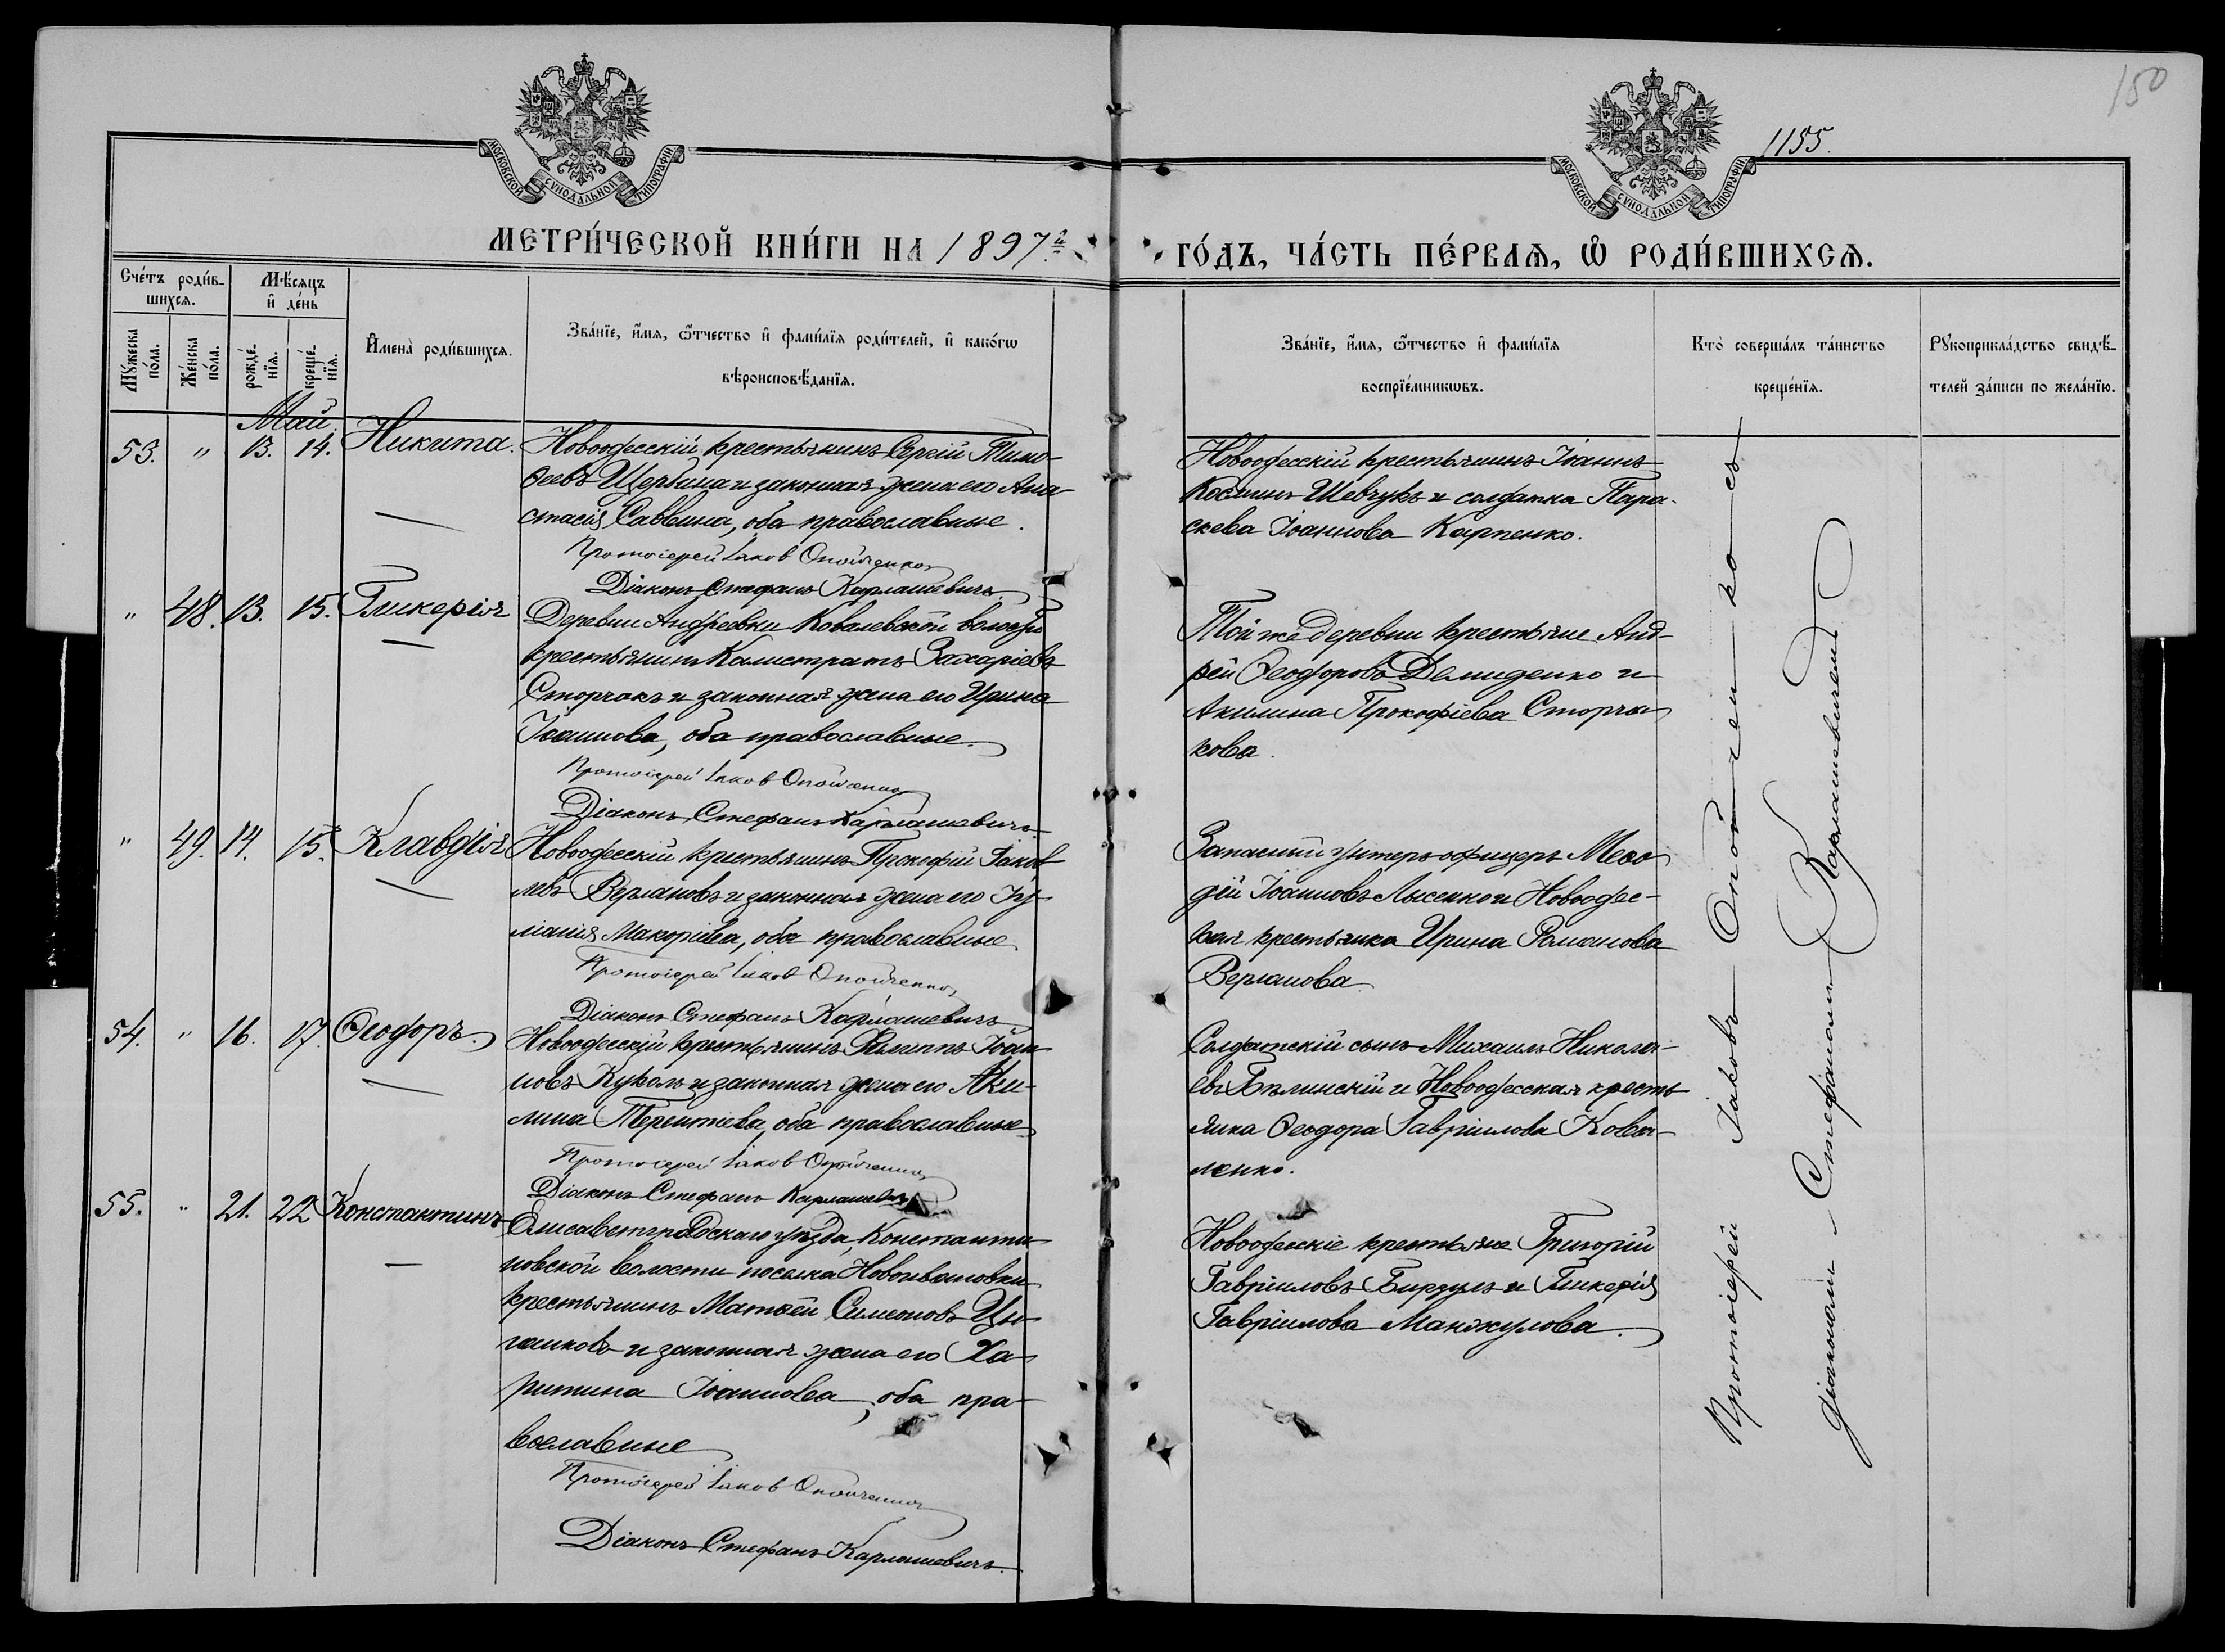 150
1155.
МОСКОВСКОЙ СѴНОДАЛЬНОЙ ТИПОГРАФІИ
МОСКОВСКОЙ СѴНОДАЛЬНОЙ ТИПОГРАФІИ
МЕТРИ́ЧЕСКОЙ КНИ́ГИ НА 1897 г.
ГО́ДЪ, ЧА́СТЬ ПЕ́РВАѦ, Ѡ҆ РОДИ́ВШИХСѦ.
Сче́тъ роди́в-
шихсѧ.
Мѣ́сѧцъ
и҆ де́нь
Мꙋ́жеска
по́ла.
Же́нска
по́ла.
рожде́-
нїѧ.
креще́-
нїѧ.
И҆мена̀ роди́вшихсѧ.
Зва́нїе, и҆́мѧ, ѻ҆́тчество и҆ фами́лїѧ роди́телей, и҆ како́гѡ
вѣроисповѣ́данїѧ.
Зва́нїе, и҆́мѧ, ѻ҆́тчество и҆ фами́лїѧ
воспрїе́мникѡвъ.
Кто̀ соверша́лъ та́инство
креще́нїѧ.
Рꙋкоприкла́дство свидѣ́-
телей за́писи по жела́нїю.
Май
53. " 13. 14. Никита.
Новоодесскій крестьянинъ Сергій Тимо-
ѳеевъ Щербина и законная жена его Ана
стасія Саввина, оба православные.
Протоіерей Іаков Опойченко
Діаконъ Стефанъ Карлашевичъ
Новоодесскій крестьянинъ Іоаннъ
Косминъ Шевчукъ и солдатка Пара-
скева Іоаннова Карпенко.
" 48. 13. 15. Гликерія
Деревни Андреевки Ковалевской волости
крестьянинъ Калистратъ Захаріевъ
Сторчакъ и законная жена его Ирина
Іоаннова, оба православные.
Протоіерей Іаков Опойченко
Діаконъ Стефанъ Карлашевичъ
Той же деревни крестьяне Анд-
рей Ѳеодоровъ Демиденко и
Акилина Прокофіева Сторча
кова.
" 49. 14. 15. Клавдія
Новоодесскій крестьянинъ Прокофій Іаков
левъ Верлановъ и законная жена его Іу-
ліанія Макаріева, оба православные
Протоіерей Іаков Опойченко
Діаконъ Стефанъ Карлашевичъ
Запасный унтеръ-офицеръ Меѳо
дій Іоанновъ Лысенко и Новоодес-
кая крестьянка Ирина Романова
Верланова
54. " 16. 17. Ѳеодоръ.
Новоодесскій крестьянинъ Филиппъ Іоан
новъ Куколь и законная жена его Аки-
лина Терентіева, оба православные
Протоіерей Іаков Опойченко
Діаконъ Стефанъ Карлашевичъ
Солдатскій сынъ Михаилъ Никола-
евъ Бѣлинскій и Новоодесская кресть
янка Ѳеодора Гавріилова Кова-
ленко.
55. " 21. 22 Константинъ
Елисаветградскаго уѣзда, Константи
новской волости поселка Новоивановки
крестьянинъ Матѳей Симеоновъ Цы-
ганковъ и законная жена его Ха-
ритина Іоаннова, оба пра-
вославные
Протоіерей Іаков Опойченко
Діаконъ Стефанъ Карлашевичъ.
Новоодесскіе крестьяне Григорій
Гавріиловъ Бирзулъ и Гликерія
Гавріилова Манжулова.
Протоіерей Іаковъ Опойченко съ
діакономъ Стефаномъ Карлашевичемъ